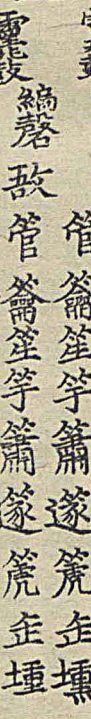 管籥笙竽簫篴篪缶壎
編磬敔管籥笙竽簫篴篪缶